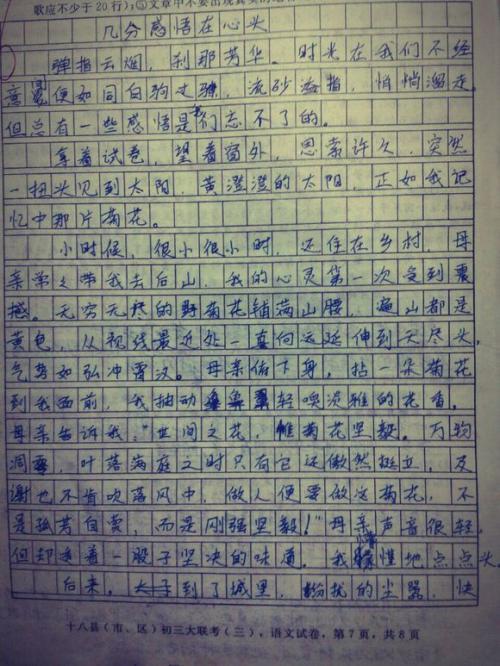 歌应不少于20行);③文章中不要出现真实的
几分感悟在心头
弹指云烟,刹那芳华。时光在我们不经
意间便如同白驹过隙,流砂海指,悄悄溜走。
但总有一些感悟是我们忘不了的。
拿着试卷,望着窗外,思索许久,突然
一扭头见到太阳,黄澄澄的太阳,正如我记
忆中那片菊花。
小时候,很小很小时,还住在乡村,母
亲常常带我去后山,我的心灵第一次受到震
撼。无穷无尽的野菊花铺满山腰,遍山都是
黄色,从视线最近处一直向远延伸到天尽头,
气势如弘冲霄汉。母亲俯下身,拈一朵菊花
到我面前,我抽动鼻轻嗅淡雅的花香。
母亲告诉我:"世间之花,惟菊花坚毅。万物
凋零,叶落满庭之时只有它还傲然挺立,及
谢也不肯吹落风中,做人便要做这菊花,不
是孤芳自赏,而是刚强坚毅!"母亲声音很轻。
但却透着一股子坚决的味道。我懵懂地点点头。
后来。去到了城里,纷扰的尘嚣,快
十八县(市、区)初三大联考(三),语文试卷,第7页,共8页